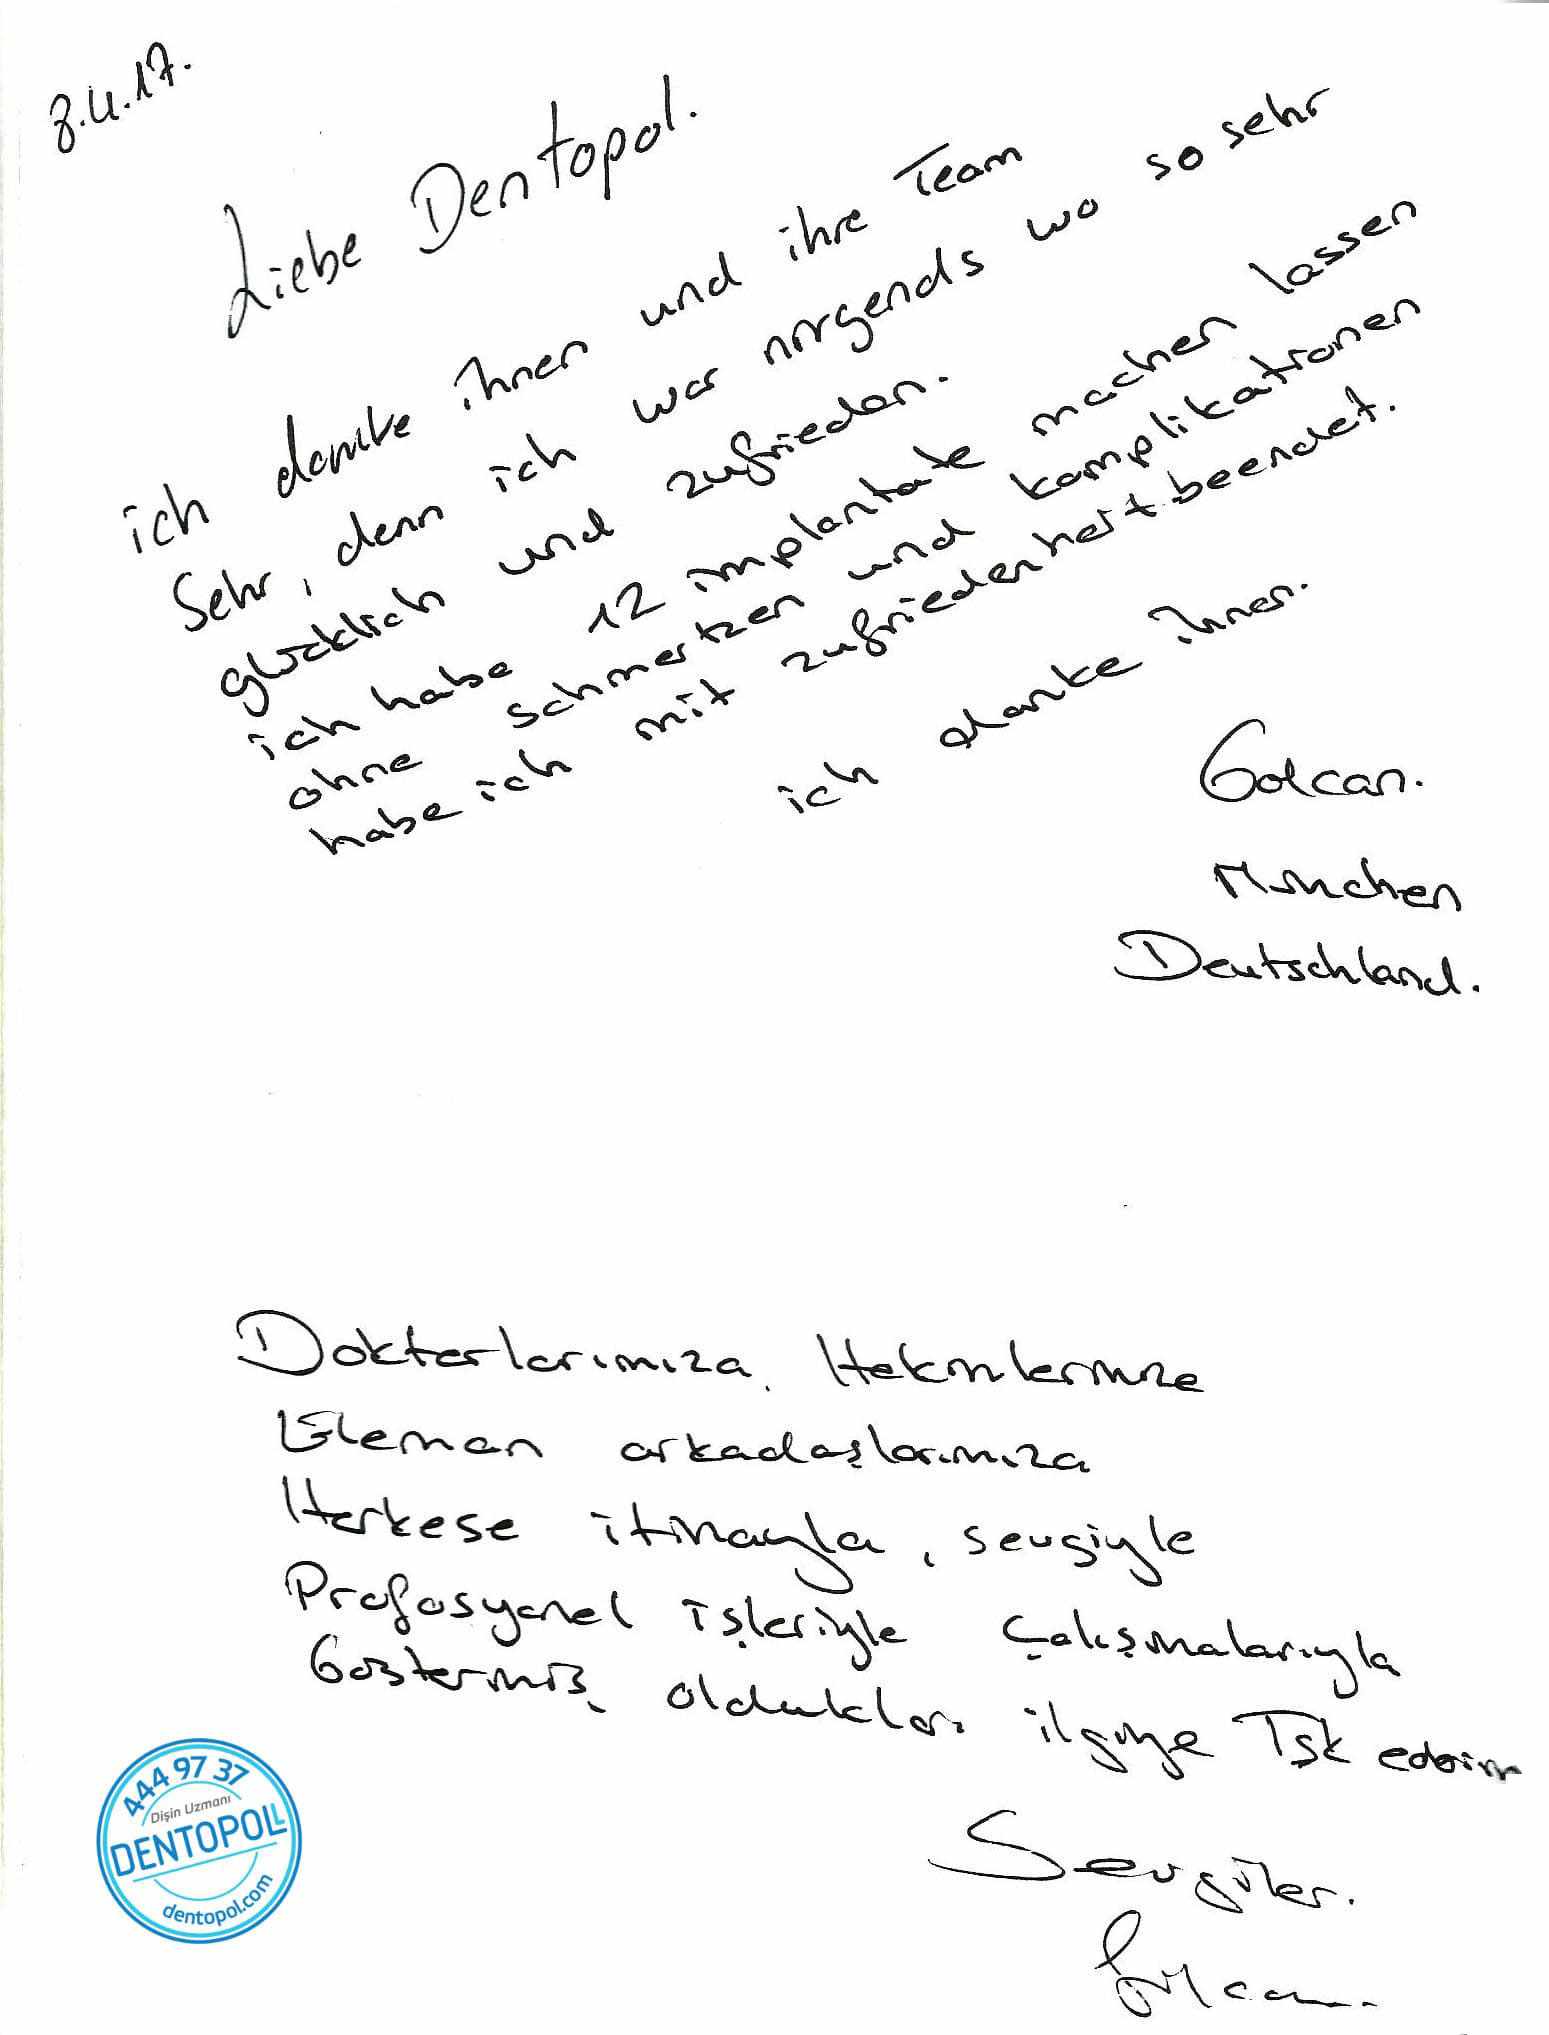 8.4.17.
Liebe Dentopol.
ich danke ihnen und ihre Team
Sehr, denn ich war nirgends wo so sehr
glücklich und zufrieden.
ich habe 12 implantate machen lassen
ohne schmertzen und komplikationen
habe ich mit zufriedenheit beendet.
ich danke ihnen.
Gülcan.
München
Deutschland.
Doktorlarımıza, Hekimlerimize
Eleman arkadaşlarımıza
Herkese itinayla, sevgiyle
Profosyonel işleriyle çalışmalarıyla
Göstermiş oldukları ilgiye Tşk ederim
Sevgiler.
Gülcan.
444 97 37
Dişin Uzmanı
DENTOPOL
dentopol.com